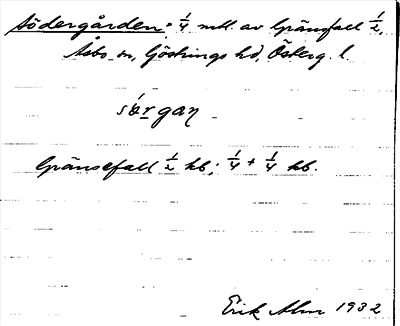 Södergården: 1/4 mtl. av Gränsfall 1/2,
Asbo sn, Göstrings hd, Österg. l.
sǿrgaɳ
Gränsefall 1/2 kb; 1/4 + 1/4 kb.
Erik Alm 1932